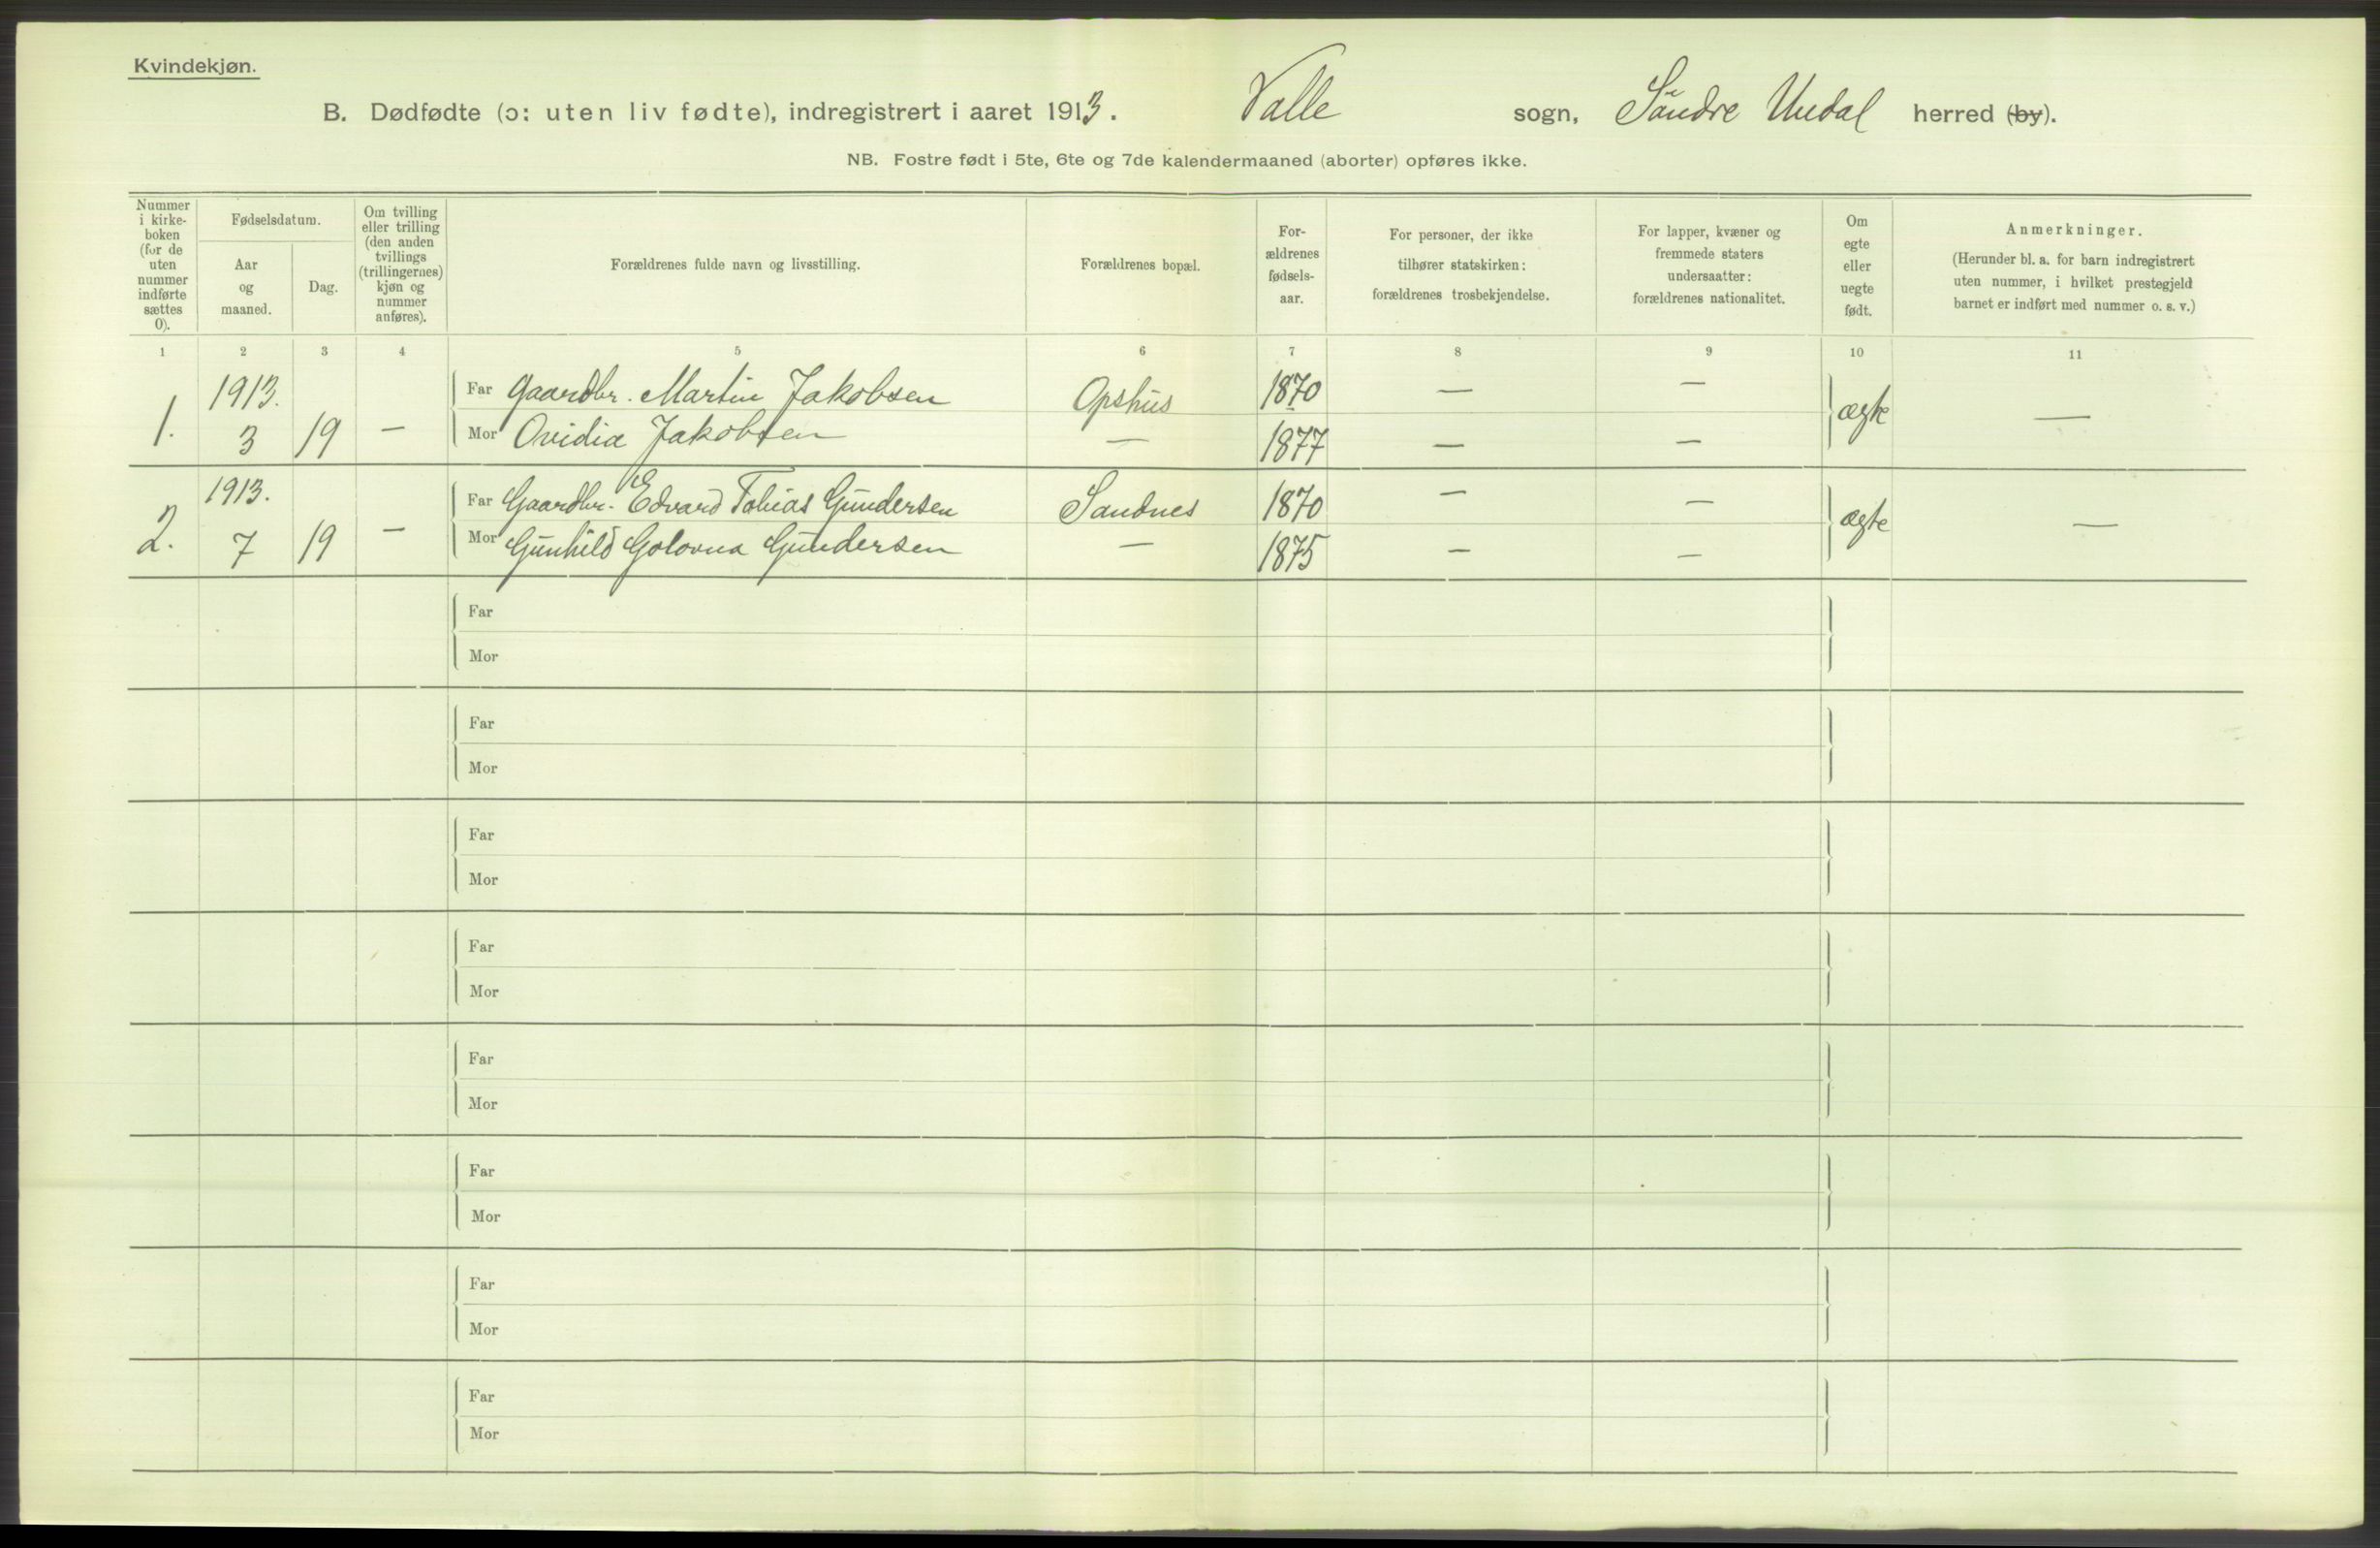 Kvindekjøn.
B. Dødfødte (ɔ: uten liv fødte), indregistrert i aaret 1913. Valle sogn, Söndre Undal herred (by).
NB. Fostre født i 5te, 6te og 7de kalendermaaned (aborter) opføres ikke.
Nummer i kirke-boken (for de uten nummer indførte sættes 0).
Fødselsdatum.
Aar og maaned.
Dag.
Om tvilling eller trilling (den anden tvillings (trillingernes) kjøn og nummer anføres).
Forældrenes fulde navn og livsstilling.
Forældrenes bopæl.
For-ældrenes fødsels-aar.
For personer, der ikke tilhører statskirken: forældrenes trosbekjendelse.
For lapper, kvæner og fremmede staters undersaatter: forældrenes nationalitet.
Om egte eller uegte født.
Anmerkninger.
(Herunder bl. a. for barn indregistrert uten nummer, i hvilket prestegjeld barnet er indført med nummer o. s. v.)
1 2 3 4 5 6 7 8 9 10 11
1913. Far Gaardbr. Martin Jakobsen Opshus 1870 — —
1. 3 19 — Mor Ovidia Jakobsen — 1877 — — ægte —
1913. Far Gaardbr. Edvard Tobias Gundersen Sandnes 1870 — —
2. 7 19 — Mor Gunhild Golovna Gundersen — 1875 — — ægte —
Far
Mor
Far
Mor
Far
Mor
Far
Mor
Far
Mor
Far
Mor
Far
Mor
Far
Mor